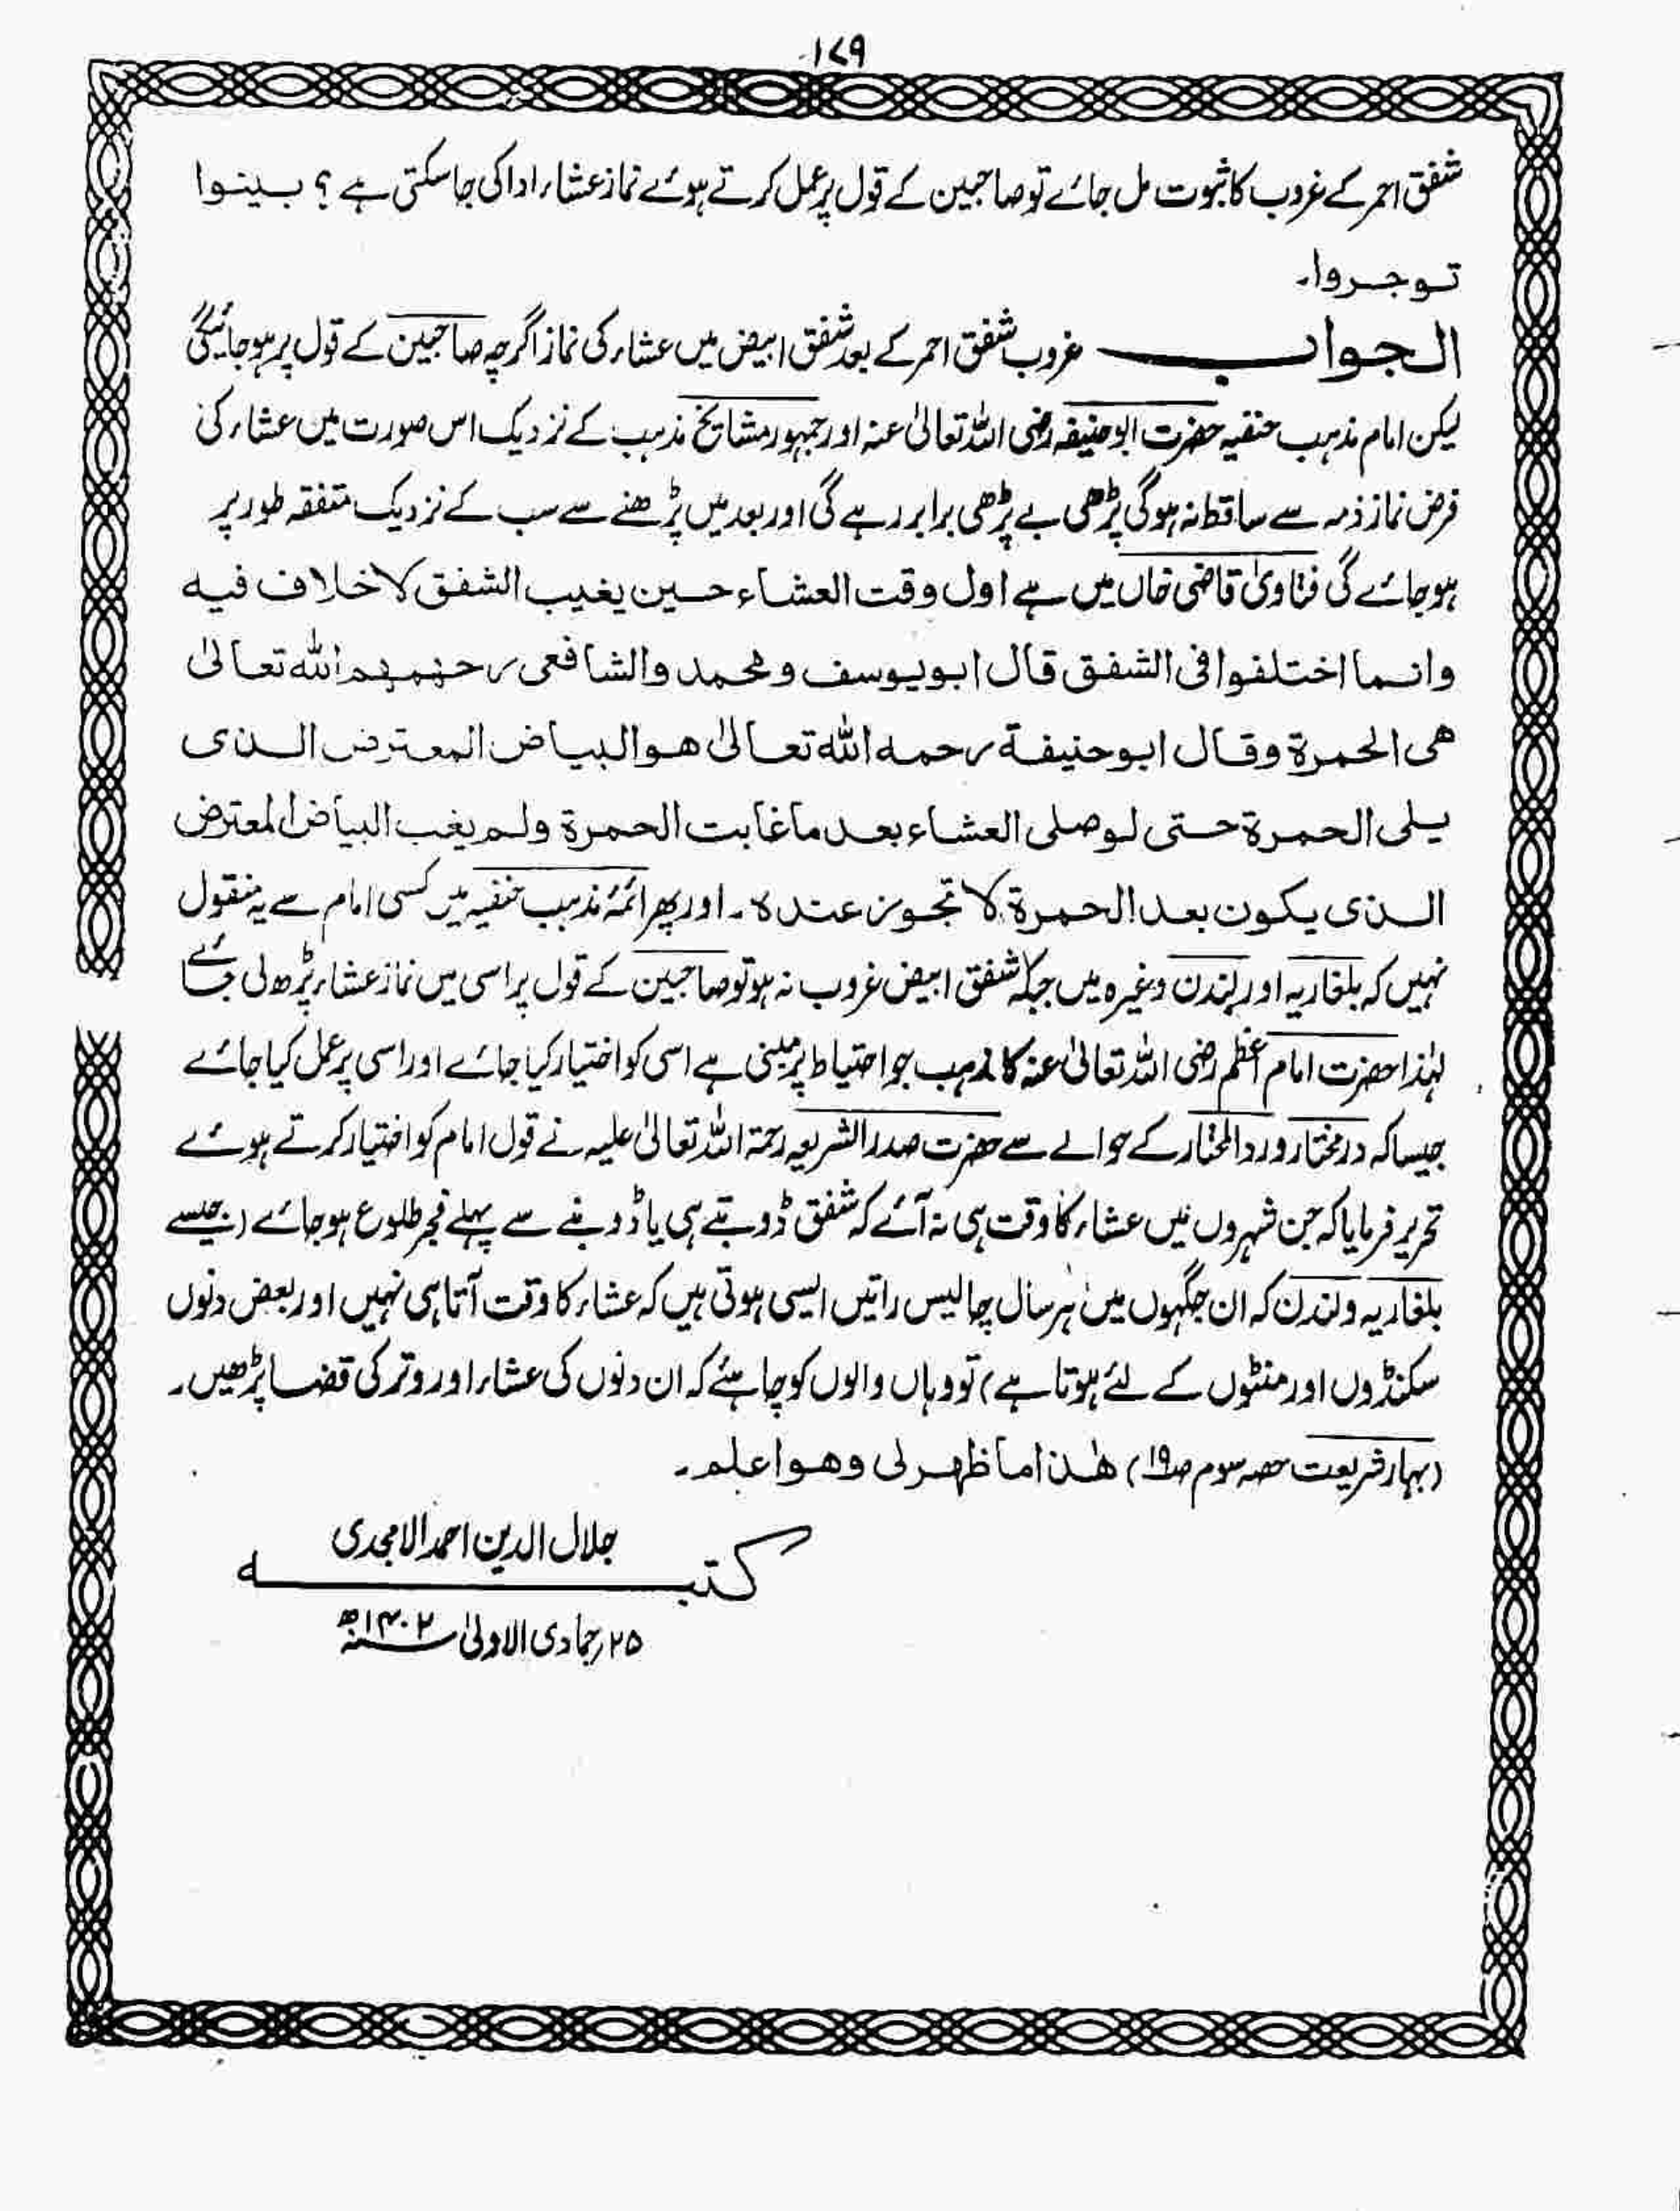 ۱۷۹
شفق احمر کے غروب کا ثبوت مل جائے تو صاحبین کے قول پر عمل کرتے ہوئے نماز عشاء ادا کی جا سکتی ہے ؟ بینوا
توجروا۔
الجواب غروب شفق احمر کے بعد شفق ابیض میں عشاء کی نماز اگرچہ صاحبین کے قول پر ہو جائیگی
لیکن امام مذہب حنفیہ حضرت ابوحنیفہ رضی اللہ تعالیٰ عنہ اور جمہور مشایخ مذہب کے نزدیک اس صورت میں عشاء کی
فرض نماز ذمہ سے ساقط نہ ہوگی پڑھی بے پڑھی برابر رہے گی اور بعد میں پڑھنے سے سب کے نزدیک متفقہ طور پر
ہو جائے گی فتاویٰ قاضی خاں میں ہے اول وقت العشاء حین یغیب الشفق لا خلاف فیه
وانما اختلفوا فی الشفق قال ابو یوسف ومحمد والشافعی رحمہم اللہ تعالیٰ
ھی الحمرة وقال ابو حنیفة رحمہ اللہ تعالیٰ ھو البیاض المعترض الذی
یلی الحمرة حتی لو صلی العشاء بعد ما غابت الحمرة ولم یغب البیاض المعترض
الذی یکون بعد الحمرة لا تجوز عندہ۔ اور پھر ائمۂ مذہب حنفیہ میں کسی امام سے یہ منقول
نہیں کہ بلغاریہ اور لندن وغیرہ میں جبکہ شفق ابیض غروب نہ ہو تو صاحبین کے قول پر اسی میں نماز عشاء پڑھ لی جائے
لہٰذا حضرت امام اعظم رضی اللہ تعالیٰ عنہ کا مذہب جو احتیاط پر مبنی ہے اسی کو اختیار کیا جائے اور اسی پر عمل کیا جائے
جیسا کہ درمختار و ردالمحتار کے حوالے سے حضرت صدرالشریعہ رحمۃ اللہ تعالیٰ علیہ نے قول امام کو اختیار کرتے ہوئے
تحریر فرمایا کہ جن شہروں میں عشاء کا وقت ہی نہ آئے کہ شفق ڈوبتے ہی یا ڈوبنے سے پہلے فجر طلوع ہو جائے (جیسے
بلغاریہ و لندن کہ ان جگہوں میں ہر سال چالیس راتیں ایسی ہوتی ہیں کہ عشاء کا وقت آتا ہی نہیں اور بعض دنوں
سکنڈوں اور منٹوں کے لئے ہوتا ہے) تو وہاں والوں کو چاہئے کہ ان دنوں کی عشاء اور وتر کی قضا پڑھیں۔
(بہار شریعت حصہ سوم ص۱۹) ھٰذا ما ظھر لی وھو اعلم۔
جلال الدین احمد الامجدی
کتبہ
۲۵؍ جمادی الاولیٰ سنہ ۱۴۰۲ھ